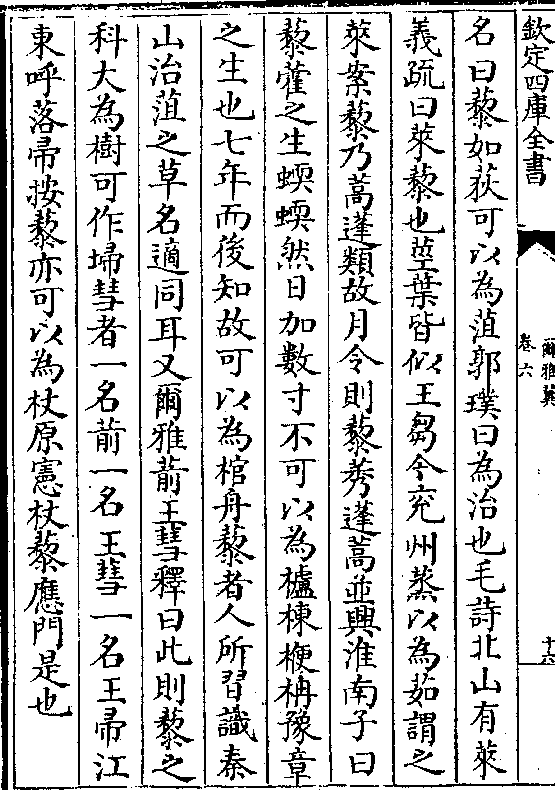 欽定四庫全書
爾雅翼
卷六
十六
名曰藜如荻可以為菹郭璞曰為治也毛詩北山有萊
義疏曰萊藜也莖葉皆似王芻今兖州蒸以為茹謂之
萊案藜乃蒿蓬類故月令則藜莠蓬蒿並興淮南子曰
藜藿之生蝡蝡然日加數寸不可以為櫨棟楩柟豫章
之生也七年而後知故可以為棺舟藜者人所習識秦
山治菹之草名適同耳又爾雅葥王彗釋曰此則藜之
科大為樹可作埽彗者一名葥一名王彗一名王帚江
東呼落帚按藜亦可以為杖原憲杖藜應門是也